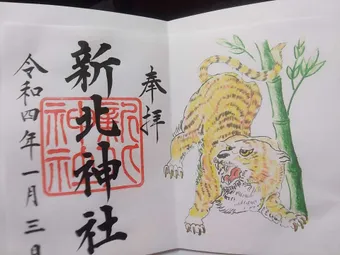 奉拝
新北神社
令和四年一月三日